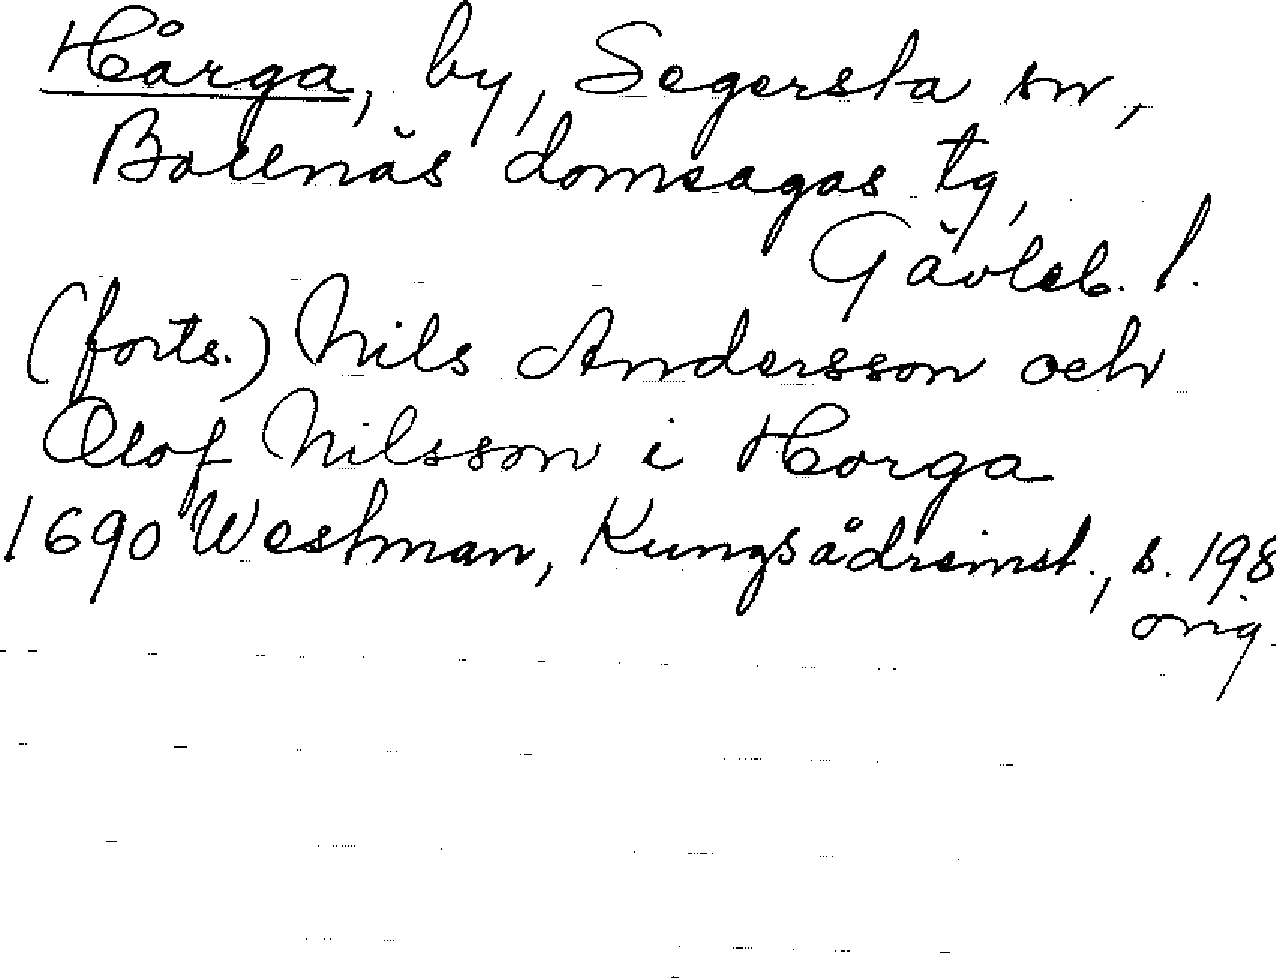 Hårga, by, Segersta sn,
Bollnäs domsagas tg,
Gävleb. l.
(forts.) Nils Andersson och
Olof Nilsson i Horga
1690 Westman, Kungsådreinst., s. 198
orig.